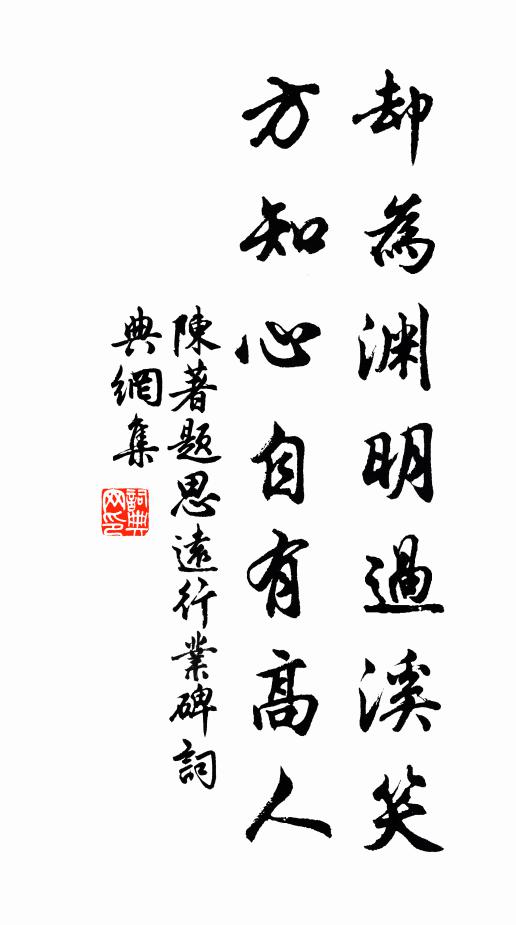 却為淵明過溪笑
方知心自有高人
陳著題思遠行業碑詞
典網集
詞典網印